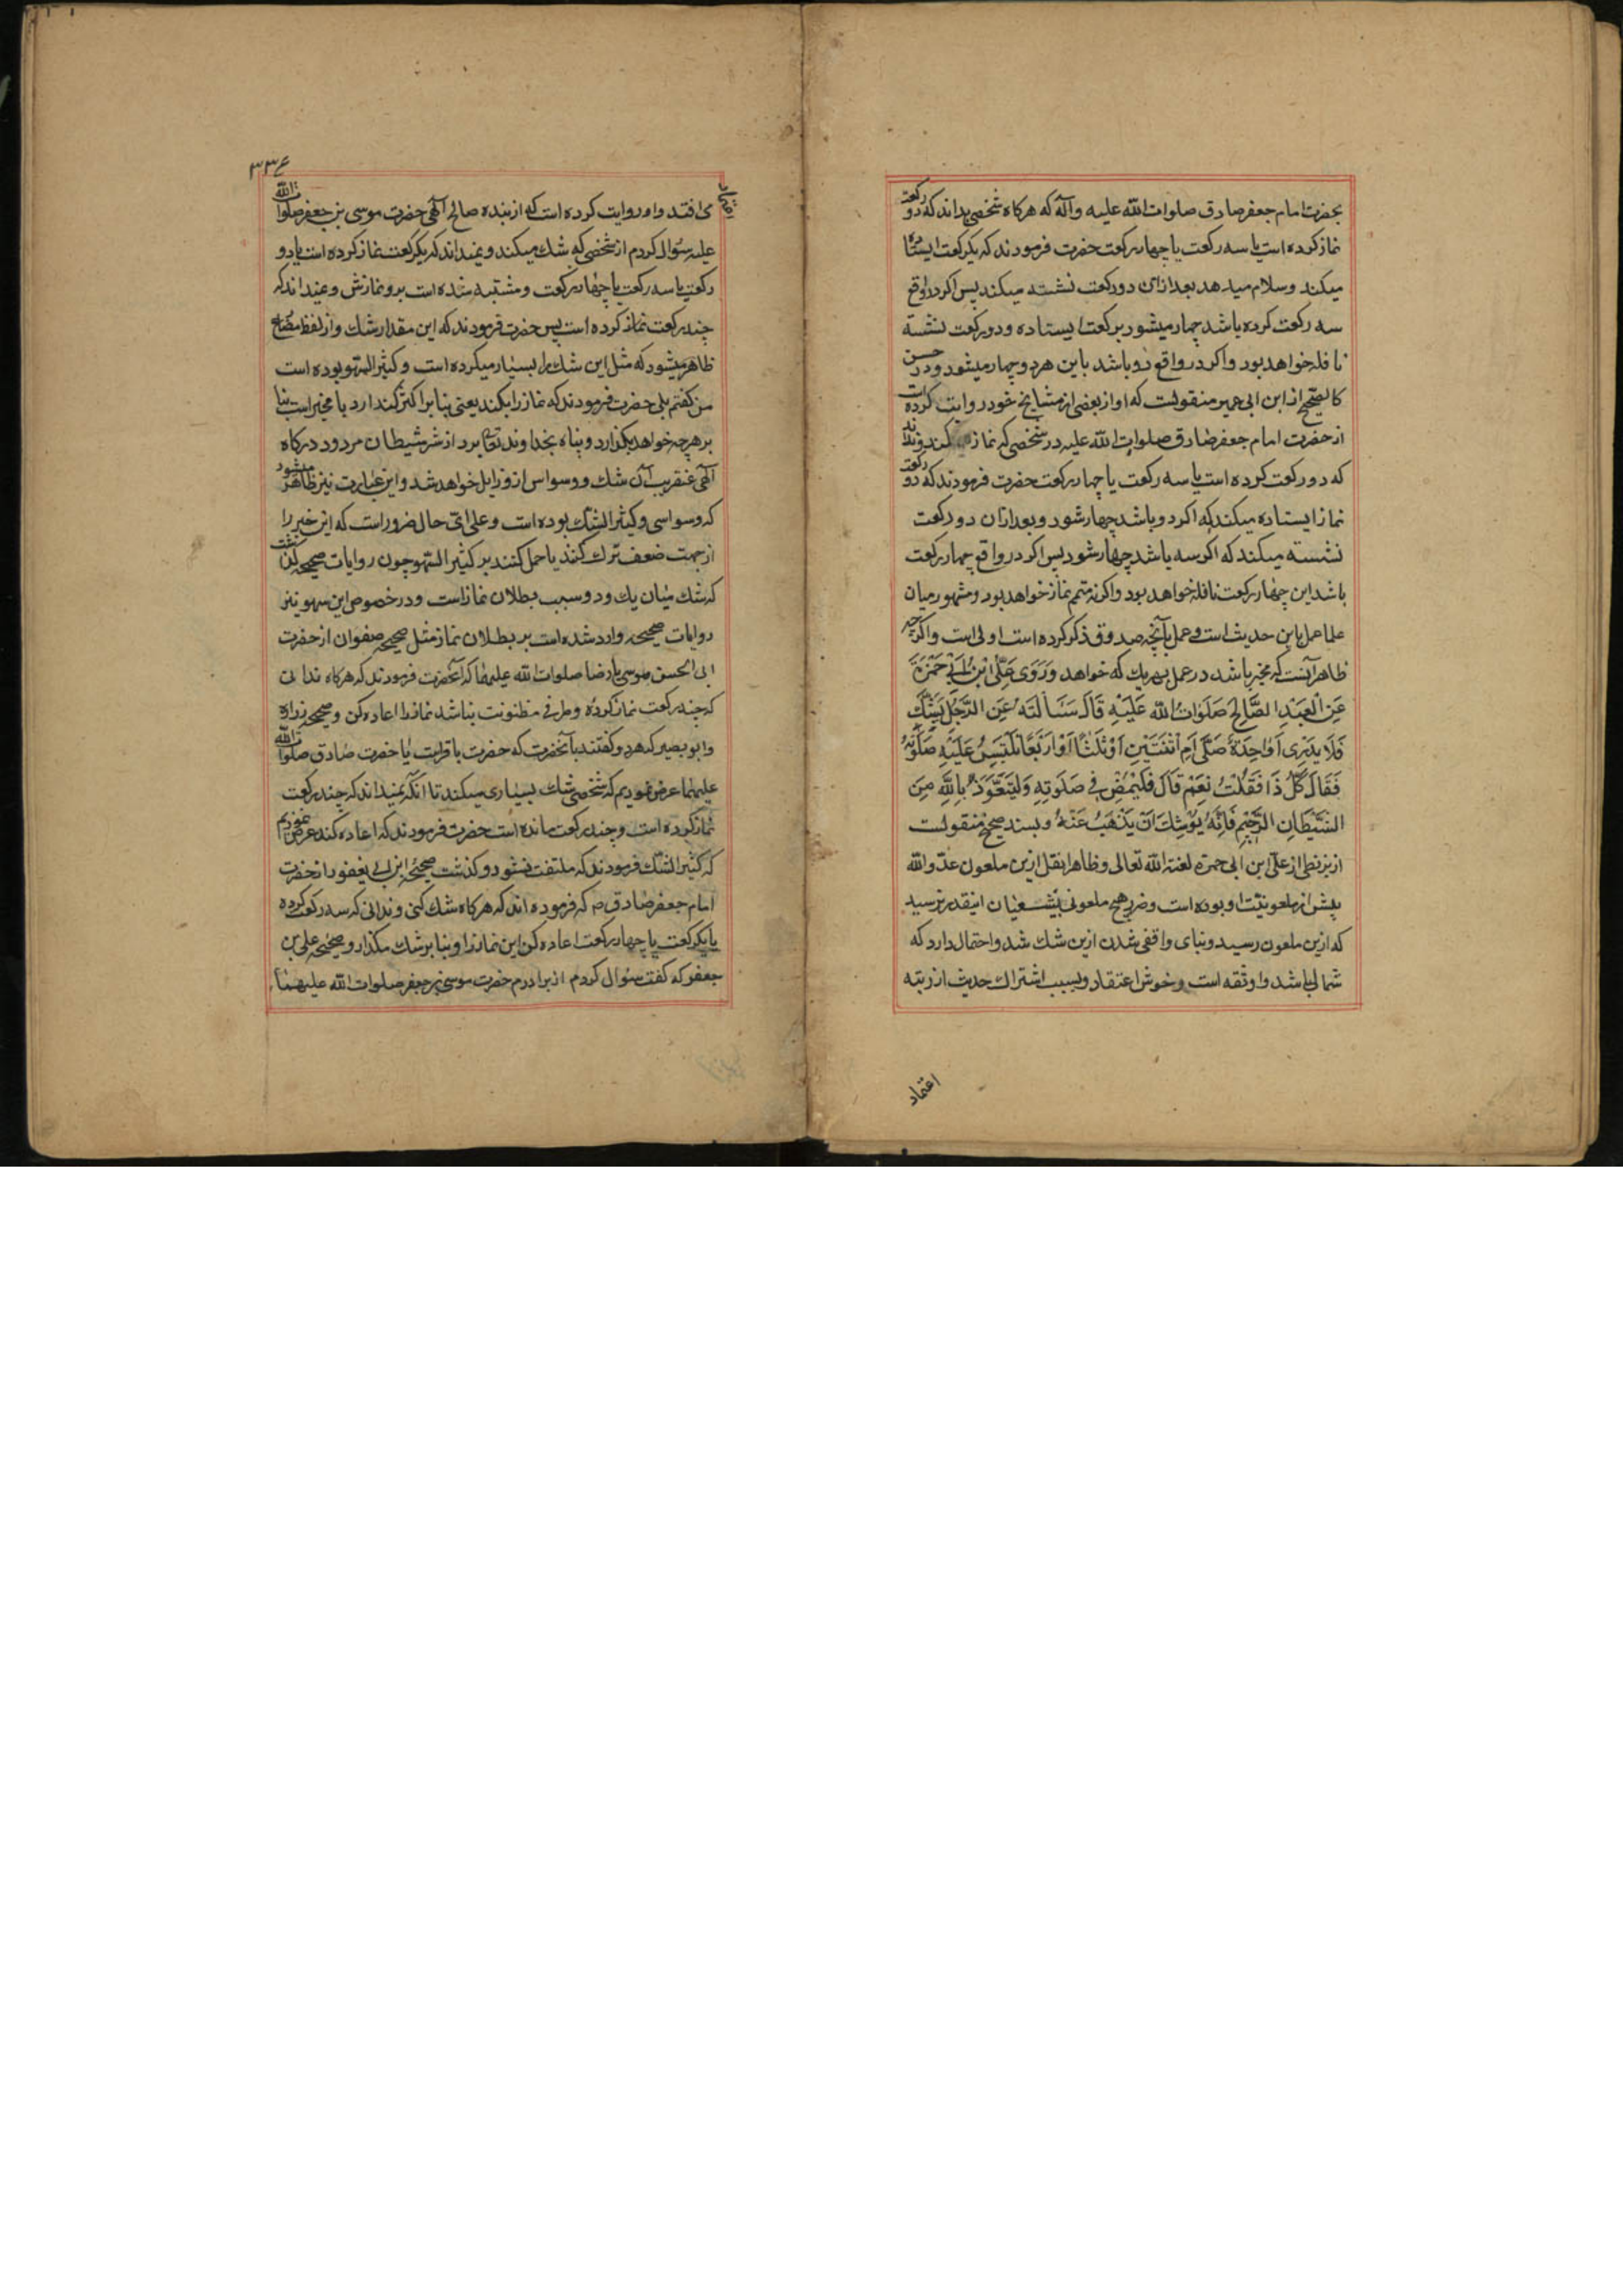 بحضرت امام جعفر صادق صلوات الله علیه وآله که هرکاه شخصی بداند که دو رکعت
نماز کرده است یا سه رکعت یا چهار رکعت حضرت فرمودند که یکرکعت ایستاده
میکند وسلام میدهد بعد ازان دو رکعت نشسته میکند پس اکر در واقع
سه رکعت کرده باشد چهار میشود برکعت ایستاده ودو رکعت نشسته
نافله خواهد بود واکر در واقع دو باشد باین هردو چهار میشود ودر حسن
کالصحیح از ابن ابی عمیر منقولست که او از بعضی از مشایخ خود روایت کرده است
از حضرت امام جعفر صادق صلوات الله علیه در شخصی که نماز کند ونداند
که دو رکعت کرده است یا سه رکعت یا چهار رکعت حضرت فرمودند که دو رکعت
نماز ایستاده میکند که اکر دو باشد چهار شود وبعد ازان دو رکعت
نشسته میکند که اکر سه باشد چهار شود پس اکر در واقع چهار رکعت
باشد این چهار رکعت نافله خواهد بود واکرنه متمم نماز خواهد بود ومشهور میان
علما عمل باین حدیث است وعمل بآنچه صدوق ذکر کرده است اولی است واکرچه
ظاهر آنست که مخیر باشد در عمل بهریک که خواهد وَرَوَی عَلِیُّ ابْنُ اَبِی حَمْزَةَ
عَنِ الْعَبْدِ الصَّالِحِ صَلَوَاتُ اللّٰه عَلَیْهِ قَالَ سَئَالْتُهُ عَنِ الرَّجُلِ یَشُکُّ
فَلَا یَدْرِی اَوَاحِدَةً صَلَّی اَمِ اثْنَتَیْنِ اَوْ ثَلٰثًا اَوْ اَرْبَعًا تَلْتَبِسُ عَلَیْهِ صَلٰوتُهُ
فَقَالَ کُلُّ ذَا فَقُلْتُ نَعَمْ قَالَ فَلْیَمْضِ فِی صَلٰوتِهِ وَلْیَتَعَوَّذْ بِاللّٰهِ مِنَ
الشَّیْطَانِ الرَّجِیْمِ فَاِنَّهُ یُوشِکُ اَنْ یَذْهَبَ عَنْهُ وبسند صحیح منقولست
از بزنطی از علی ابن ابی حمزه لعنه الله تعالی وظاهرا نقل ازین ملعون عدو الله
پیش از ملعونیت او بوده است وضرر هیچ ملعونی بشیعیان اینقدر نرسید
که ازین ملعون رسید وبنای واقفی شدن ازین شک شد واحتمال دارد که
ثمالی باشد واو ثقه است وخوش اعتقاد وبسبب اشتراک حدیث از رتبه
اعتماد
۳۳۴
می افتد واو روایت کرده است که از بنده صالح آلهی حضرت موسی بن جعفر صلوات الله
علیه سؤال کردم از شخصی که شک میکند ونمیداند که یکرکعت نماز کرده است یا دو
رکعت یا سه رکعت یا چهار رکعت ومشتبه شده است برو نمازش ونمیداند که
چند رکعت نماز کرده است پس حضرت فرمودند که این مقدار شک واز لفظ مضارع
ظاهر میشود که مثل این شک را بسیار میکرده است وکثیر السهو بوده است
من کفتم بلی حضرت فرمودند که نماز را بکند یعنی بنا بر اکثر کذارد یا مخیر است بنا
بر هرچه خواهد بکذارد وپناه بخداوند تعالی برد از شر شیطان مردود درکاه
آلهی عنقریب آن شک ووسواس ازو زایل خواهد شد واین عبارت نیز ظاهر میشود
که وسواسی وکثیر الشک بوده است وعلی ای حال ضرور است که این خبر را
از جهت ضعف ترک کنند یا حمل کنند بر کثیر السهو چون روایات صحیحه کذشت
که شک میان یک ودو سبب بطلان نماز است ودر خصوص این سهو نیز
روایات صحیحه وارد شده است بر بطلان نماز مثل صحیحه صفوان از حضرت
ابی الحسن موسی یا رضا صلوات الله علیهما که آنحضرت فرمودند که هرکاه ندانی
که چند رکعت نماز کرده وطرفی مظنونت نباشد نماز را اعاده کن وصحیحه زراره
وابو بصیر که هردو کفتند بآنحضرت که حضرت باقر است یا حضرت صادق صلوات الله
علیهما عرض نمودیم که شخصی شک بسیاری میکند تا آنکه نمیداند که چند رکعت
نماز کرده است وچند رکعت مانده است حضرت فرمودند که اعاده کند عرض نمودیم
که کثیر الشک فرمودند که ملتفت نشود وکذشت صحیحه ابن ابی یعفور از حضرت
امام جعفر صادق ص که فرموده اند که هرکاه شک کنی وندانی که سه رکعت کرده
یا یکرکعت یا چهار رکعت اعاده کن این نماز را وبنا بر شک مکذار وصحیحه علی بن
جعفر که کفت سئوال کردم از برادرم حضرت موسی بن جعفر صلوات الله علیهما